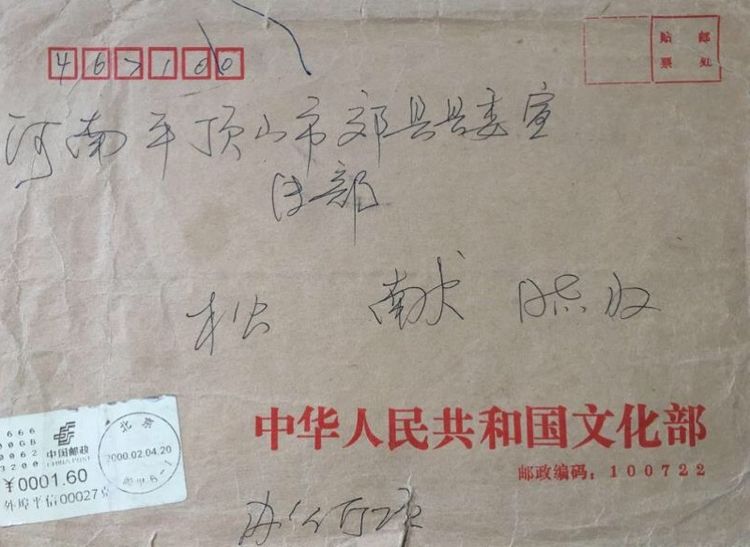 467100
贴 邮
票 处
河南平顶山市郏县县委宣
传部
松 献 收
中华人民共和国文化部
邮政编码：100722
666
00GB
0062
3200
中国邮政
CHINA POST
¥0001.60
北京
2000.02.04.20
00027
办公厅